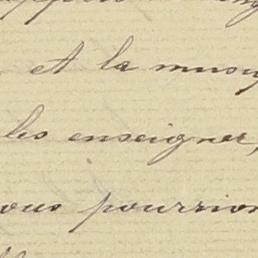 et la musi
les enseigner,
ous pourrion